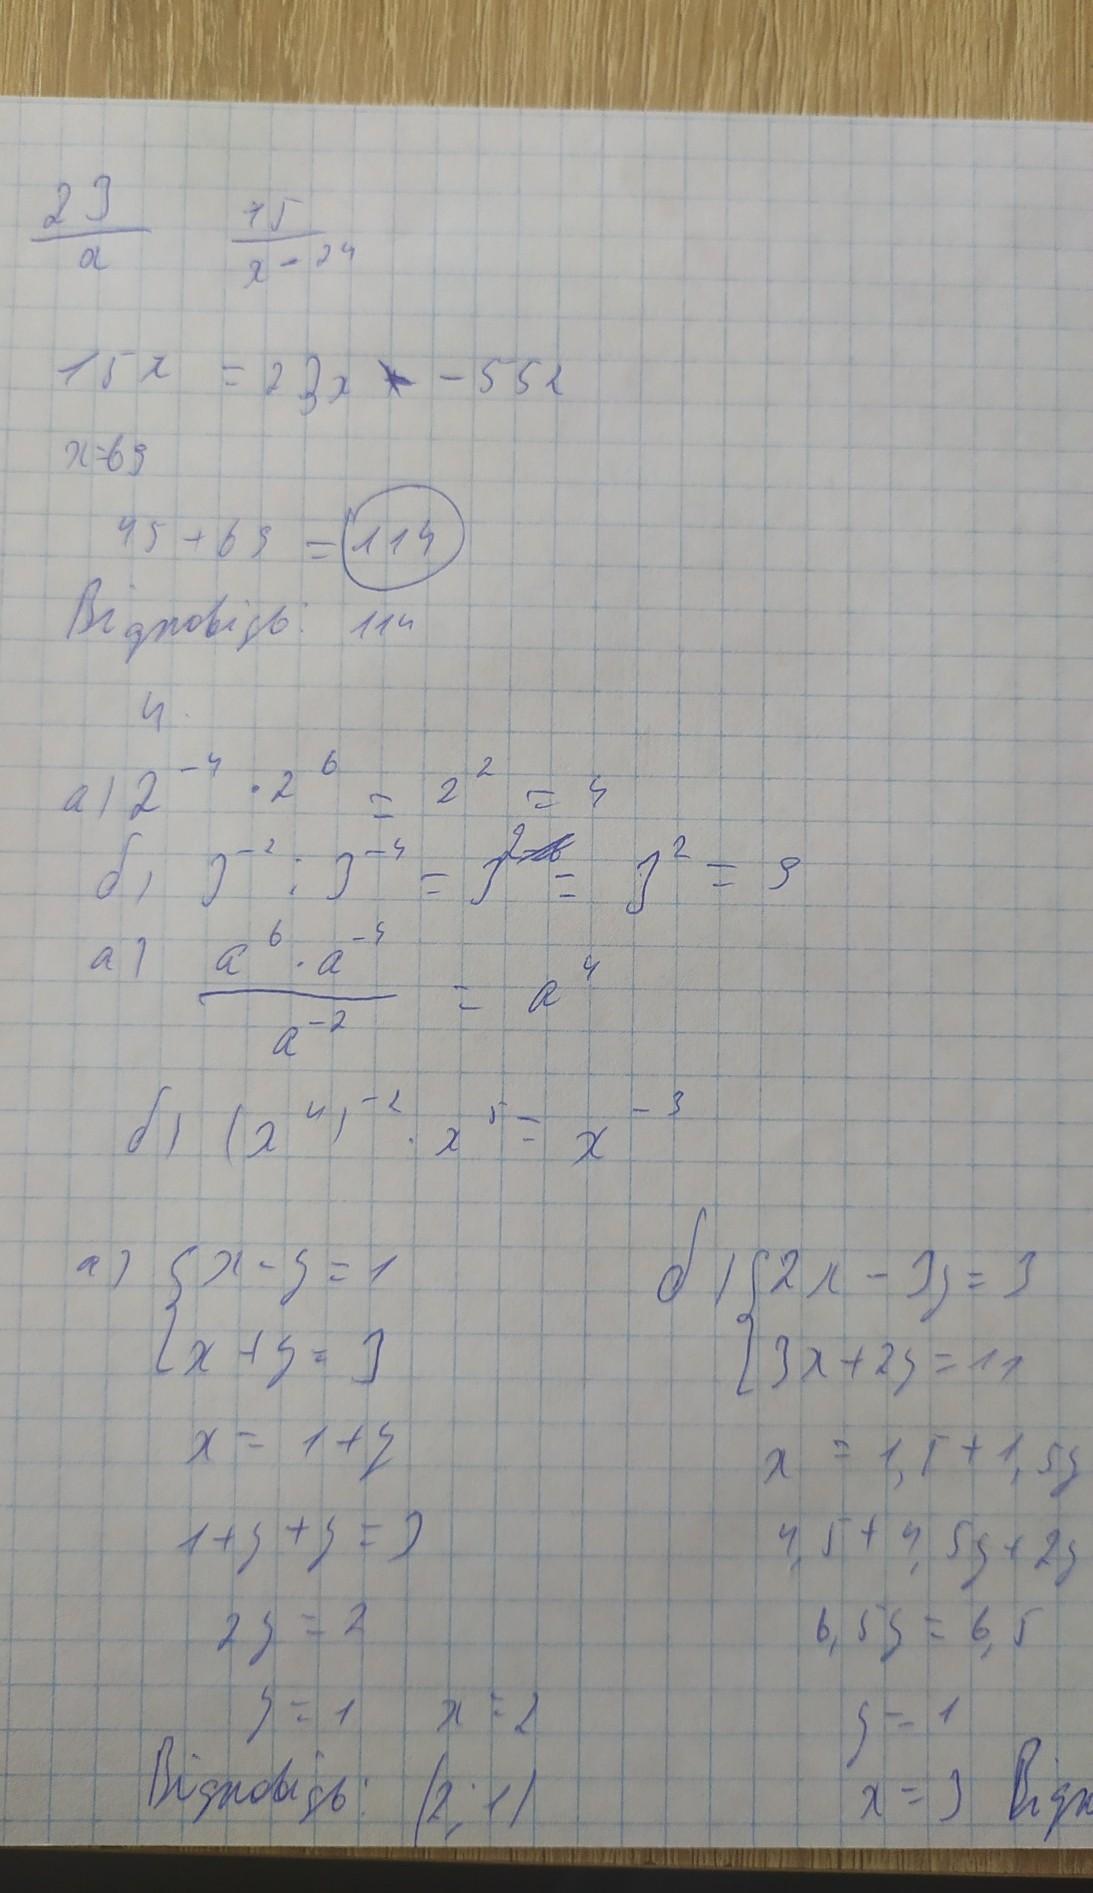 23/a 15/(x-24)
15x = 23x - 552
x=69
45+69 = 114
Відповідь: 114
4.
а) 2⁻⁴ · 2⁶ = 2² = 4
б) 3⁻² : 3⁻⁴ = 3² = 3² = 9
а) (a⁶ · a⁻⁴)/a⁻² = a⁴
б) (x⁴)⁻² · x⁵ = x⁻³
а) {x-y=1
{x+y=3
x = 1+y
1+y+y=3
2y=2
y=1 x=2
Відповідь: (2;1)
б) {2x-3y=3
{3x+2y=11
x = 1,5+1,5y
4,5+4,5y+2y
6,5y=6,5
y=1
x=3 Відп